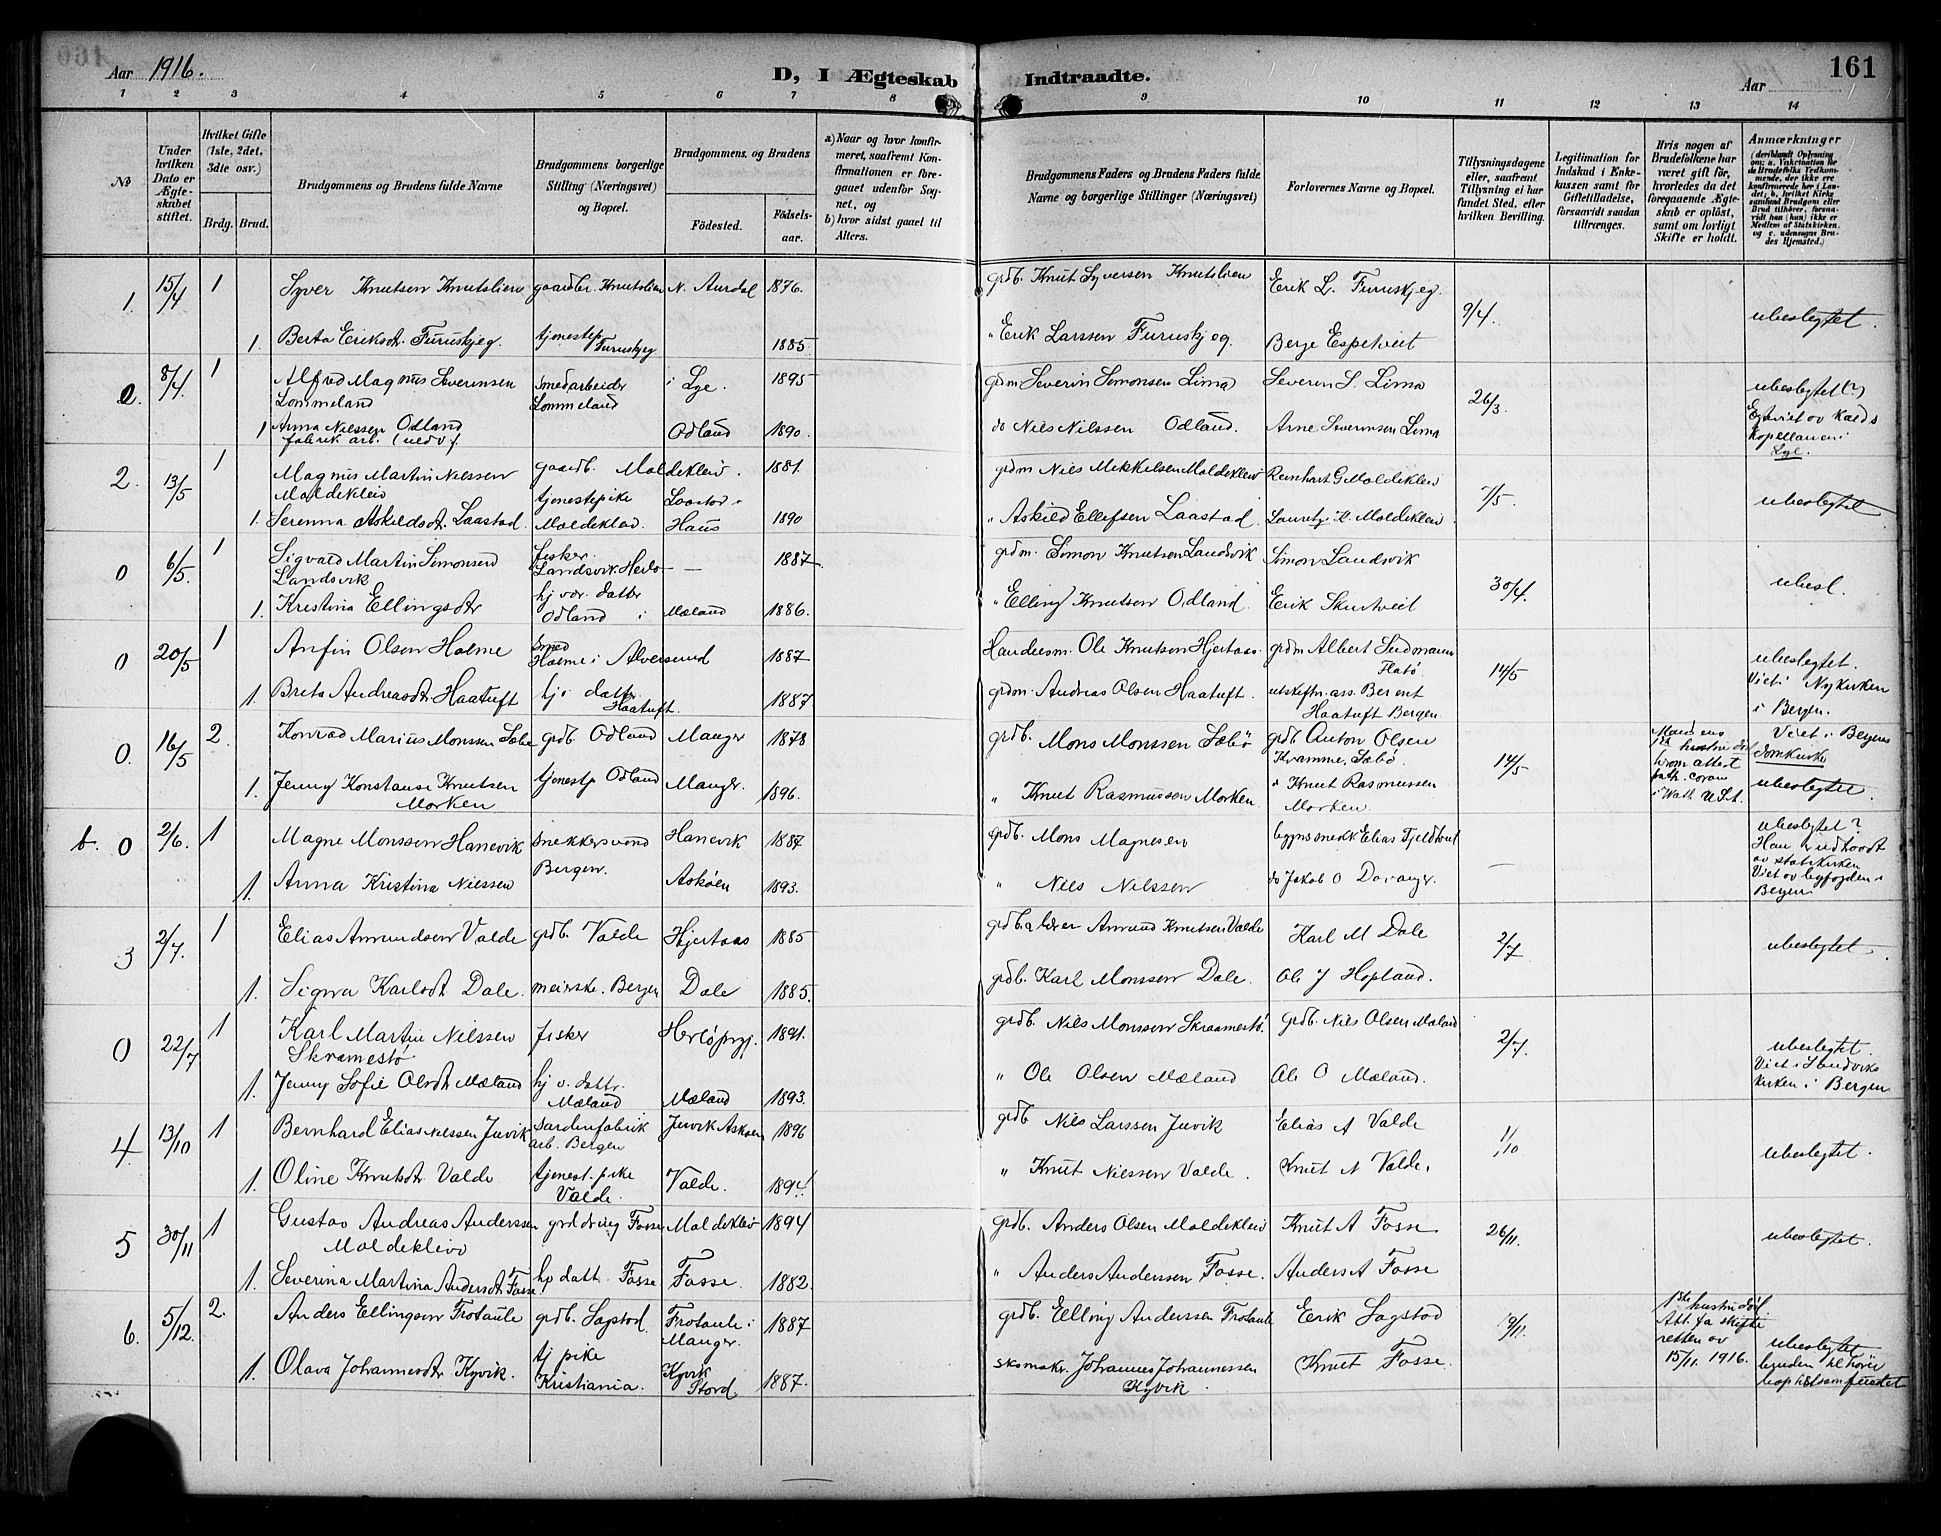 Aar 1916.
D, I Ægteskab Indtraadte.
Aar
161
1 2 3 4 5 6 7 8 9 10 11 12 13 14
No
Under hvilken Dato er Ægteskabet stiftet.
Hvilket Gifte (1ste, 2det, 3die osv.)
Brdg. Brud.
Brudgommens og Brudens fulde Navne
Brudgommens borgerlige Stilling (Næringsvei) og Bopæl.
Brudgommens og Brudens
Fødested.
Fødselsaar.
a) Naar og hvor konfirmeret, saafremt Konfirmationen er foregaaet udenfor Sognet, og
b) hvor sidst gaaet til Alters.
Brudgommens Faders og Brudens Faders fulde Navne og borgerlige Stillinger (Næringsvei)
Forlovernes Navne og Bopæl.
Tillysningsdagene eller, saafremt Tillysning ei har fundet Sted, efter hvilken Bevilling.
Legitimation for Indskud i Enkekassen samt for Giftetilladelse, forsaavidt saadan tiltrænges.
Hvis nogen af Brudefolkene har været gift før, hvorledes da det foregaaende Ægteskab er opløst, samt om lovligt Skifte er holdt.
Anmærkninger
(deriblandt Oplysning om: a. Vakcination for de Brudefolks Vedkommende, der ikke ere konfirmerede her i Landet; b. hvilket Kirkesamfund Brudgom eller Brud tilhører, forsaavidt han (hun) ikke er Medlem af Statskirken, og c. udensogns Brudes Hjemsted.)
1. 15/4 1 Syver Knutsen Knutslien gaardbr. Knutslien N. Aurdal 1876. grdb. Knut Syversen Knutslien Erik L. Furuskjeg. 9/4. ubeslegtet.
1. Berta Eriksdt. Furuskjeg. tjenestep Furuskjeg 1885 " Erik Larssen Furuskjeg. Berge Espetveit
0. 8/4. 1 Alfred Magnus Severinsen Lommeland smedarbeider Lommeland i Lye. 1895 grdm Severin Simonsen Lima Severin S. Lima 26/3. ubeslegtet(?)
1 Anna Nilssen Odland fabrik arb. Odland 1890. do Nils Nilssen Odland. Arne Severinsen Lima kapellanen i Lye.
2. 13/5 1 Magnus Martin Nilssen Moldekleiv gaardb. Moldekleiv. 1881. grdm Nils Mikkelsen Moldekleiv Reinhart G Moldekleiv 7/5. ubeslegtet
1. Serenna Askildsdt. Laastad. tjenestepike Moldekleiv. Laastad i Haus 1890 " Askild Ellefsen Laastad. Moldekleiv.
0 6/5. 1 Sigvald Martin Simonsen Landsvik fisker. Landsvik Herlø — 1887. grdm. Simon Knutsen Landsvik Simon Landsvik 30/4. ubesl.
1. Kristina Ellingsdtr hj vær. datter Odland i Mæland 1886. " Elling Knutsen Odland. Erik Skurtveit
0 20/5 1 Anfin Olsen Holme smed Holme i Alversund 1887 Handlesm. Ole Knutsen Hjertaas. grdm Albert Sudmann Flatø. 14/5 ubeslegtet.
1. Brita Andreasdt. Haatuft hj. datter Haatuft. 1887. grdm. Andreas Olsen Haatuft. utskiftn. ass. Berent Haatuft Bergen. Viet i Nykirken i Bergen.
0. 16/5 2. Konrad Marius Monssen Sæbø grdb. Odland Manger 1878 grdb. Mons Monssen Sæbø grdb Anton Olsen Kvamme, Sæbø. 14/5 Mandens 1st hustru død Viet i Bergens domkirke
1. Jenny Konstanse Knutsen Morken tjenestp Odland Manger. 1896. " Knut Rasmussen Morken. " Knut Rasmussen Morken. ubeslegtet.
b. 0 2/6. 1 Magne Monssen Hanevik snekkersvend Bergen. Hanevik 1887 grdb. Mons Magnesen bygnsnedk Elias Fjeldtvedt — ubeslegtet? Han er udtraadt av statskirken Viet av byfogden i Bergen.
1. Anna Kristina Nilssen Askøen 1893. " Nils Nilssen do Jakob O Davanger.
3 2/7. 1 Elias Amundsen Valde grdb. Valde Hjertaas 1885 grdb. a lærer Amund Knutsen Valde Karl M Dale 2/7 ubeslegtet.
1. Signa Karlsdt Dale. meierske. Bergen Dale 1885. grdb. Karl Monssen Dale. Ole J Hopland.
0 22/7 1 Karl Martin Nilssen Skramestø fisker Herlø prgj. 1891. grdb. Nils Monssen Skraamestø. grdb. Nils Olsen Mæland 2/7. ubeslegtet. Viet i Sandvikskirken i Bergen
1. Jenny Sofie Olsdt. Mæland hj v. dattr. Mæland Mæland 1893. " Ole Olsen Mæland Ole O Mæland.
4. 13/10 1 Bernhard Elias Nilssen Juvik sardinfabrik arb. Bergen Juvik Askøen 1896 grdb Nils Larssen Juvik Elias A Valde 1/10 ubeslegtet.
1. Oline Knutsdt Valde tjenest. pike Valde. Valde. 1894. " Knut Nilssen Valde. Knut N Valde.
5 30/11 1 Gustav Andreas Anderssen Moldekleiv grd dreng Fosse Moldekleiv 1894 grdb. Anders Olsen Moldekleiv Knut A Fosse 26/11. ubeslegtet.
1. Severina Martina Andersdt Fosse hj datt. Fosse Fosse. 1882. " Anders Anderssen Fosse. Anders A Fosse
6. 5/12. 2. Anders Ellingsen Frotaule grdb. Sagstad. Frotaule i Manger. 1887 grdb. Elling Anderssen Frotaule Erik Sagstad 19/11. 1ste hustru død. Att. fa skifteretten av 15/11. 1916. ubeslegtet
1. Olava Johannesdt. Kyvik. tj pike Kristiania. Kyvik Stord. 1887. skomakr. Johannes Johannessen Kyvik. Knut Fosse. bruden tilhører baptistsamfundet